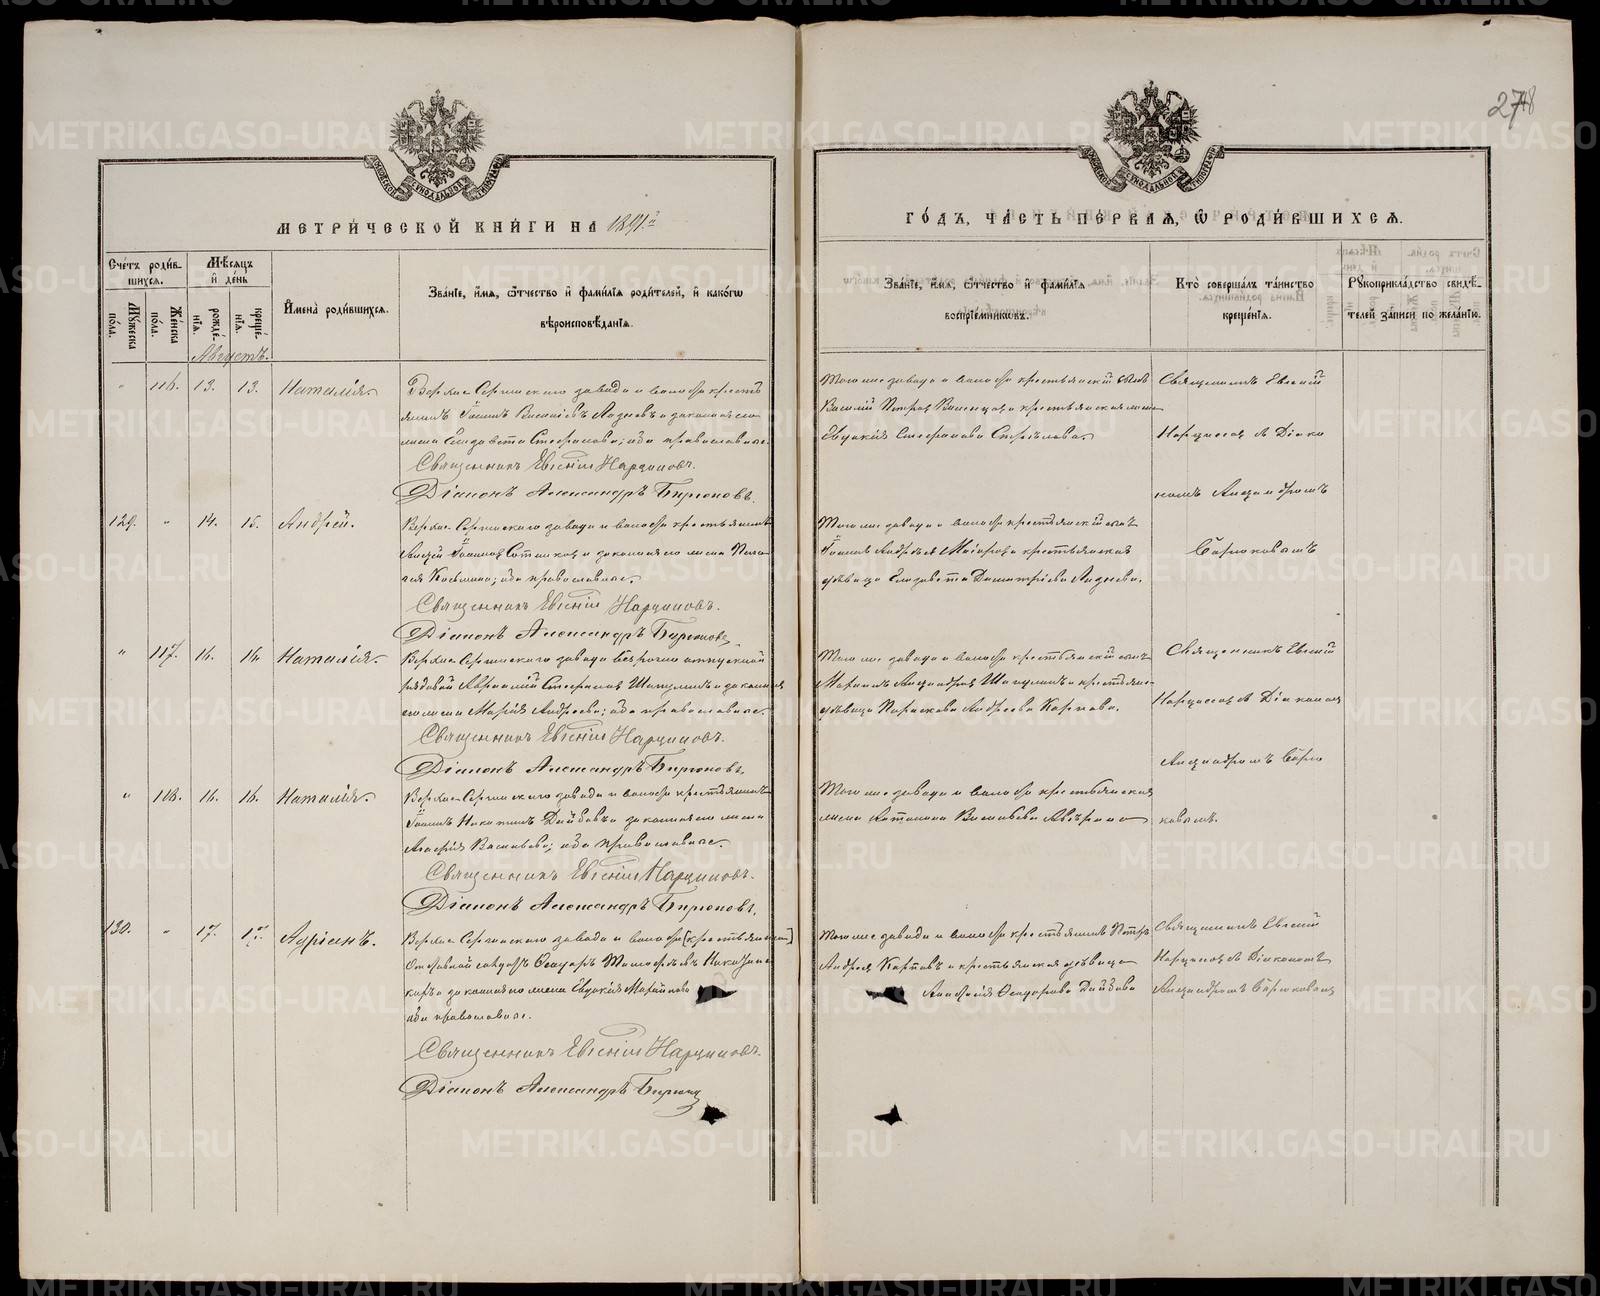 278
МЕТРИ́ЧЕСКОЙ КНИ́ГИ НА 1891й
ГО́ДЪ, ЧА́СТЬ ПЕ́РВАЯ, Ѡ РОДИ́ВШИХСЯ.
Сче́тъ роди́вшихся.
Му́жеска по́ла.
Же́нска по́ла.
Мѣ́сяцъ и҆ де́нь
рожде́нія.
креще́нія.
И҆мена̀ роди́вшихся.
Зва́ніе, и҆́мя, ѻ҆́тчество и҆ фами́лія роди́телей, и҆ како́гѡ
вѣроисповѣ́данія.
Зва́ніе, и҆́мя, ѻ҆́тчество и҆ фами́лія
воспріе́мникѡвъ.
Кто̀ соверша́лъ та́инство
креще́нія.
Рꙋкоприкла́дство свидѣ́-
телей за́писи по жела́нію.
Августъ.
" 116. 13. 13. Наталія.
Верхне-Сергинскаго завода и волости кресть
янинъ Іоаннъ Ладневъ и законная его
жена Елизавета Стефанова; оба православные.
Священникъ Евгеній Нарциссовъ.
Діаконъ Александръ Бирюковъ.
Того же завода и волости крестьянскій сынъ
Василій Петровъ и крестьянская жена
Евдокія Стефанова
Священникъ Евгеній
Нарциссовъ съ Діако
номъ Александромъ
Бирюковымъ
129. " 14. 15. Андрей.
Верхне-Сергинскаго завода и волости крестьянинъ
Іоанновъ и законная его жена Пела
гея Косьмина; оба православные.
Священникъ Евгеній Нарциссовъ.
Діаконъ Александръ Бирюковъ.
Того же завода и волости крестьянскій сынъ
Іоаннъ Андреевъ и крестьянская
дѣвица Елизавета Димитріева Ладнева.
" 117. 16. 16. Наталія.
Верхне-Сергинскаго завода безсрочно отпускной
рядовой Авраамій Стефановъ Шапулинъ и законная
его жена Марія Андреева; оба православные.
Священникъ Евгеній Нарциссовъ.
Діаконъ Александръ Бирюковъ.
Того же завода и волости крестьянскій сынъ
Александровъ Шапулинъ и крестьянс-
дѣвица Параскева Андреева Карпова.
Священникъ Евгеній
Нарциссовъ съ Діакономъ
Александромъ Бирю
ковымъ.
" 118. 16. 16. Наталія.
Верхне-Сергинскаго завода и волости крестьянинъ
Іоаннъ Никитинъ и законная его жена
Агафія Васильева; оба православные.
Священникъ Евгеній Нарциссовъ.
Діаконъ Александръ Бирюковъ.
Того же завода и волости крестьянская
жена Васильева
130. " 17. Адріанъ.
Верхне-Сергинскаго завода и волости [крестьянинъ]
Ѳеодоръ Никано
ровъ и законная его жена Евдокія
оба православные.
Священникъ Евгеній Нарциссовъ.
Діаконъ Александръ Бирюковъ
Того же завода и волости крестьянинъ Петръ
Андреевъ Карповъ и крестьянская дѣвица
Анастасія Ѳеодорова
Священникъ Евгеній
Нарциссовъ съ Діакономъ
Александромъ Бирюковымъ
METRIKI.GASO-URAL.RU